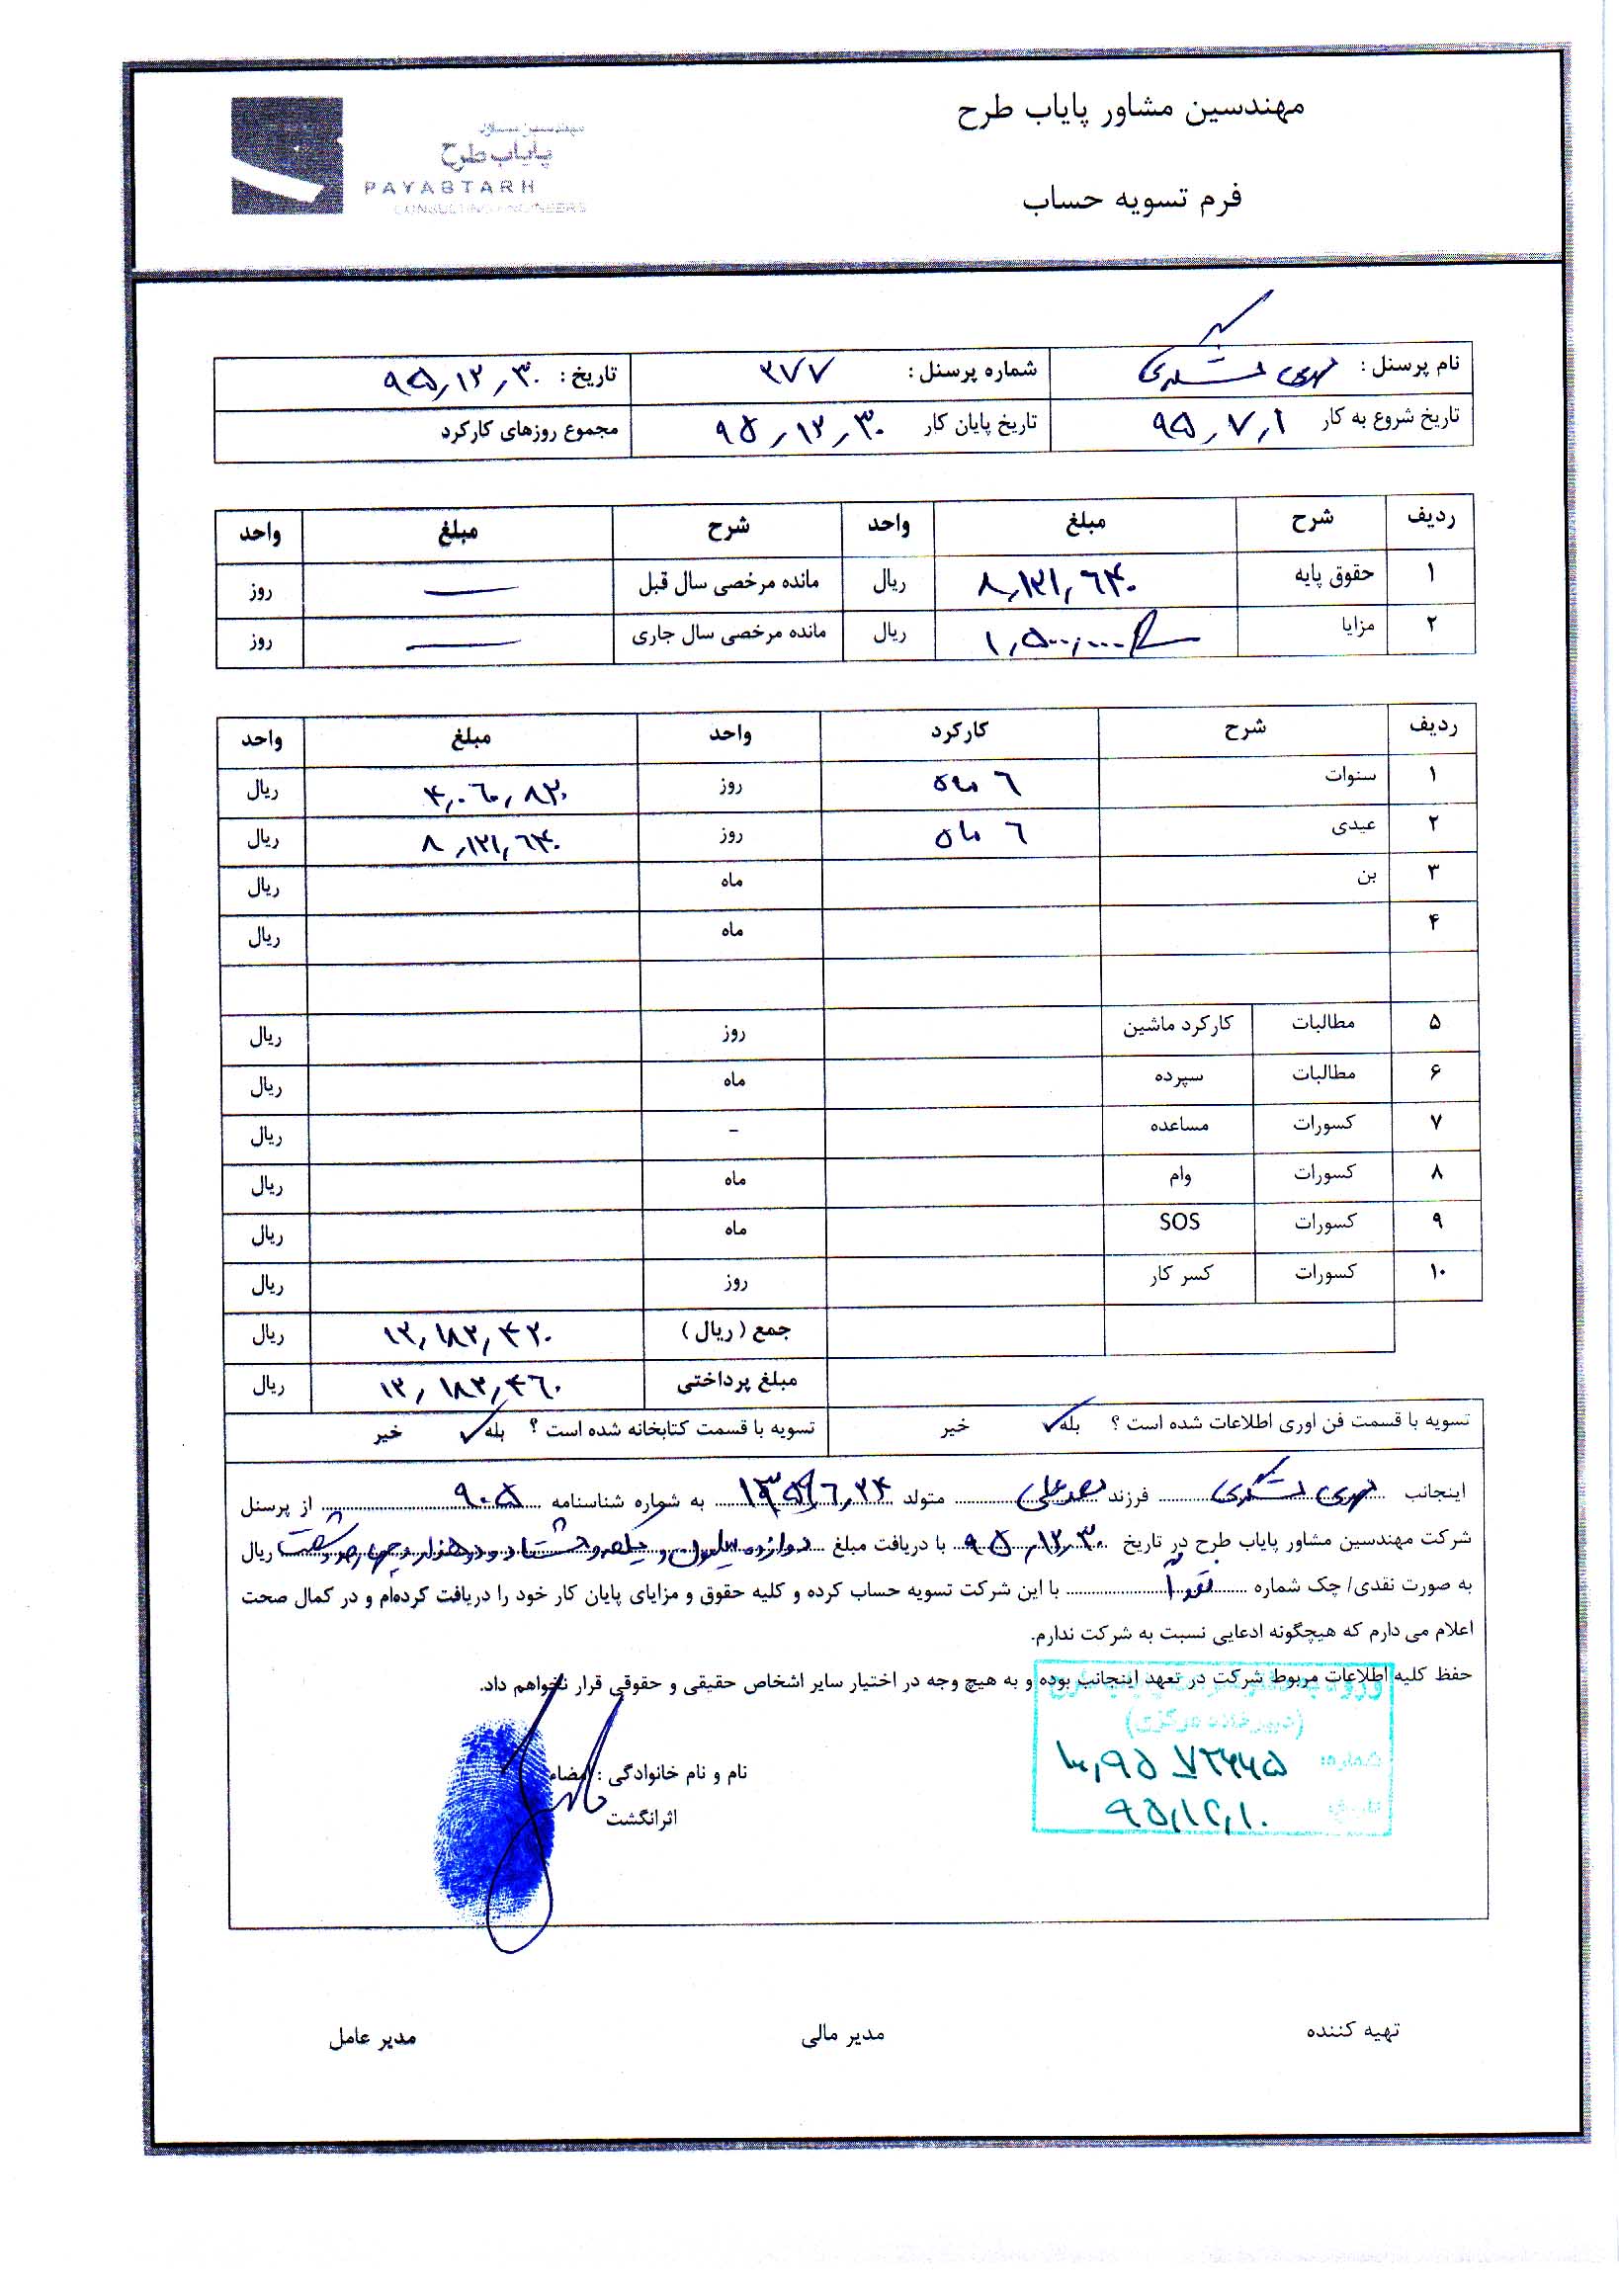 مهندسین مشاور پایاب طرح
پایاب طرح
PAYABTARH
CONSULTING ENGINEERS
فرم تسویه حساب
نام پرسنل : مهدی شماره پرسنل : ۳۷۷ تاریخ : ۹۵,۱۲,۳۰
تاریخ شروع به کار ۹۵,۷,۱ تاریخ پایان کار ۹۵,۱۲,۳۰ مجموع روزهای کارکرد
ردیف شرح مبلغ واحد شرح مبلغ واحد
۱ حقوق پایه ۸,۱۲۱,۶۴۰ ریال مانده مرخصی سال قبل — روز
۲ مزایا ۱,۵۰۰,۰۰۰ ریال مانده مرخصی سال جاری — روز
ردیف شرح کارکرد واحد مبلغ واحد
۱ سنوات ۶ ماه روز ۴,۰۶۰,۸۲۰ ریال
۲ عیدی ۶ ماه روز ۸,۱۲۱,۶۴۰ ریال
۳ بن ماه ریال
۴ ماه ریال
۵ مطالبات کارکرد ماشین روز ریال
۶ مطالبات سپرده ماه ریال
۷ کسورات مساعده - ریال
۸ کسورات وام ماه ریال
۹ کسورات SOS ماه ریال
۱۰ کسورات کسر کار روز ریال
جمع ( ریال ) ۱۲,۱۸۲,۴۲۰ ریال
مبلغ پرداختی ۱۲,۱۸۲,۴۶۰ ریال
تسویه با قسمت فن اوری اطلاعات شده است ؟ بله ✓ خیر تسویه با قسمت کتابخانه شده است ؟ بله ✓ خیر
اینجانب مهدی فرزند متولد به شماره شناسنامه ۹۰۵ از پرسنل
شرکت مهندسین مشاور پایاب طرح در تاریخ ۹۵,۱۲,۳۰ با دریافت مبلغ دوازده میلیون و یکصد و هشتاد و دو هزار و چهارصد و شصت ریال
به صورت نقدی/ چک شماره نقداً با این شرکت تسویه حساب کرده و کلیه حقوق و مزایای پایان کار خود را دریافت کرده‌ام و در کمال صحت
اعلام می دارم که هیچگونه ادعایی نسبت به شرکت ندارم.
حفظ کلیه اطلاعات مربوط شرکت در تعهد اینجانب بوده و به هیچ وجه در اختیار سایر اشخاص حقیقی و حقوقی قرار نخواهم داد.
(دبیرخانه مرکزی)
شماره:
تاریخ: ۹۵,۱۲,۱۰
نام و نام خانوادگی : امضاء
اثرانگشت
تهیه کننده مدیر مالی مدیر عامل